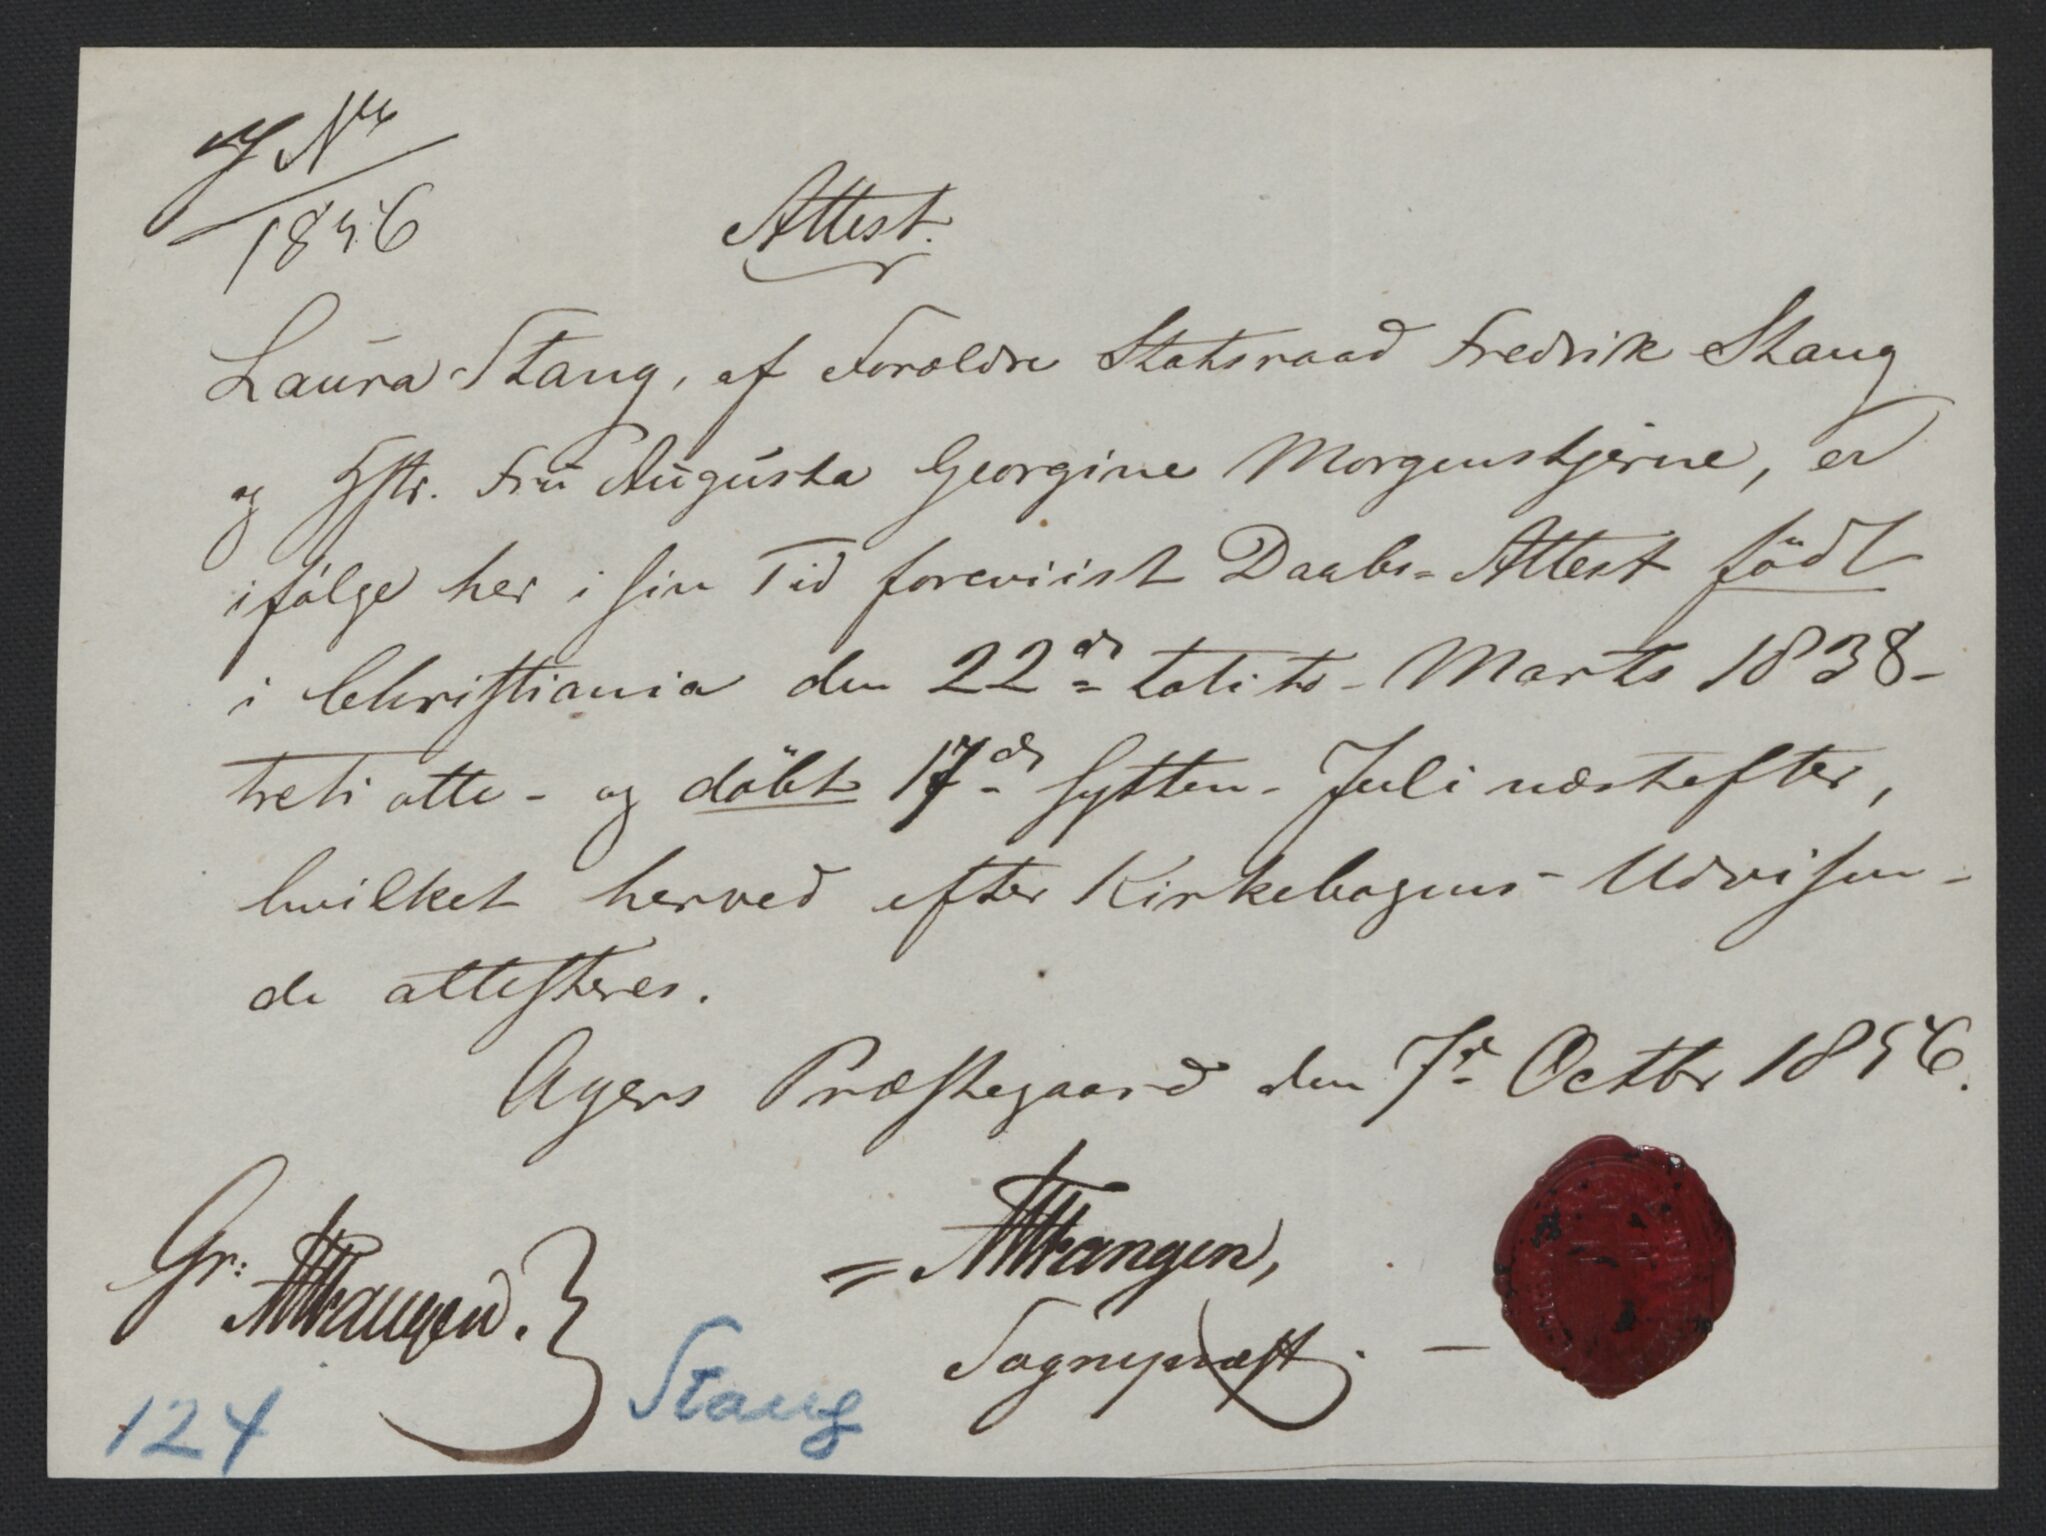 1856
Attest.
Laura Stang, af Forældre Statsraad Fredrik Stang
og Hstr. Frü Augusta Georgine Morgenstjerne, er
ifølge her i sin Tid foreviist Daabs-Attest født
i Christiania den 22de toti to - Marts 1838-
treti otte - og döbt 17de sytten - Juli næstefter,
hvilket herved efter Kirkebogens Udvisen-
de attesteres.
Agers Præstegaard den 7de Octbr 1856.
Gr:
Sognepræst.
124 Stang